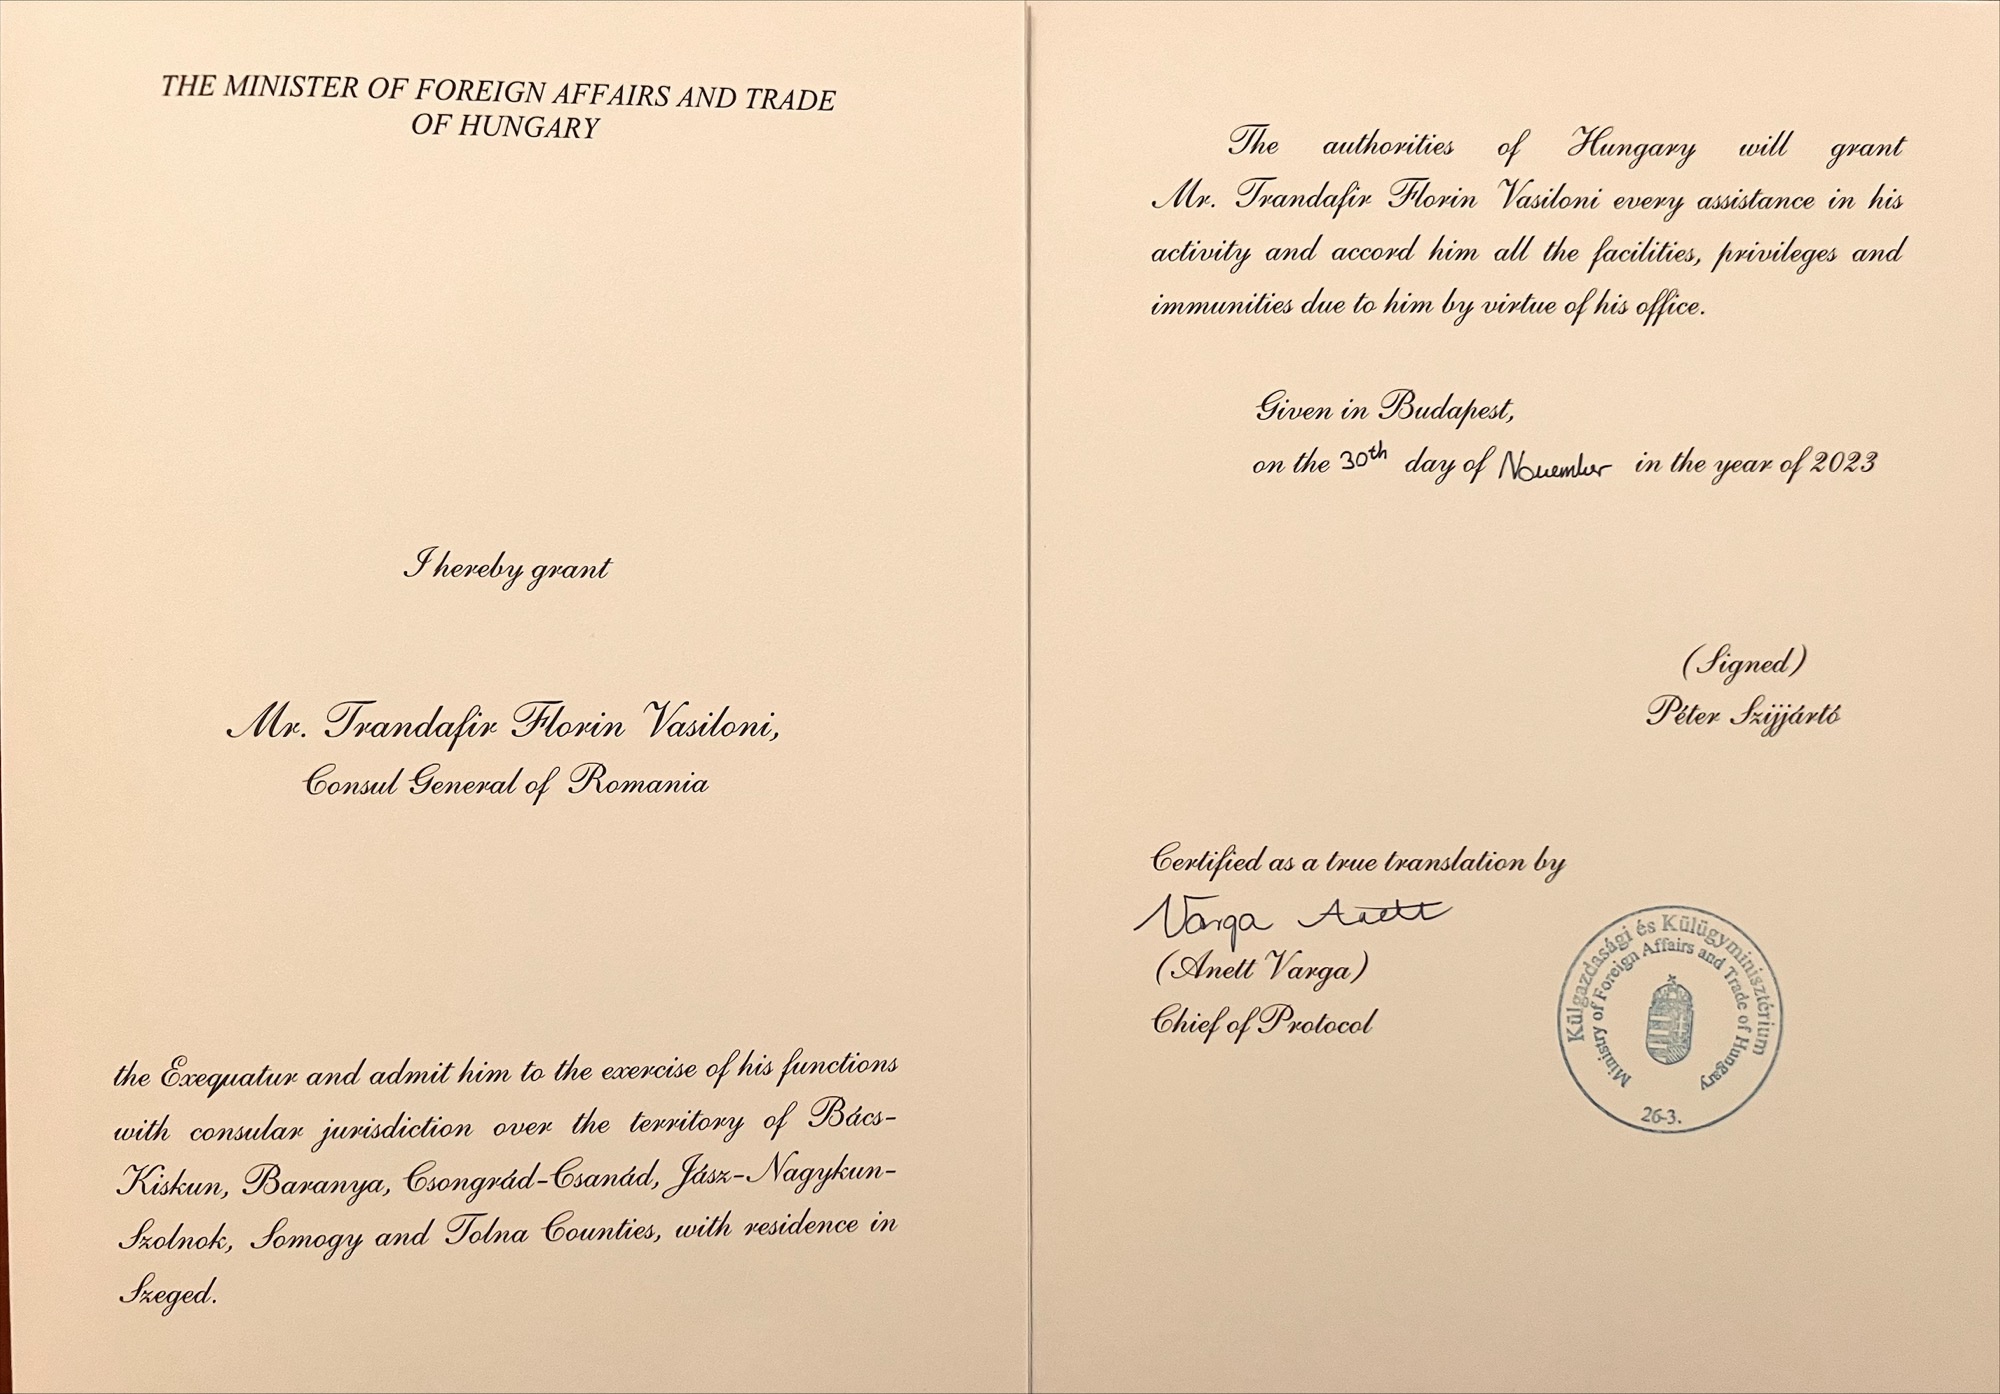 THE MINISTER OF FOREIGN AFFAIRS AND TRADE
OF HUNGARY
I hereby grant
Mr. Trandafir Florin Vasiloni,
Consul General of Romania
the Exequatur and admit him to the exercise of his functions
with consular jurisdiction over the territory of Bács-
Kiskun, Baranya, Csongrád-Csanád, Jász-Nagykun-
Szolnok, Somogy and Tolna Counties, with residence in
Szeged.
The authorities of Hungary will grant
Mr. Trandafir Florin Vasiloni every assistance in his
activity and accord him all the facilities, privileges and
immunities due to him by virtue of his office.
Given in Budapest,
on the 30th day of November in the year of 2023
(Signed)
Péter Szijjártó
Certified as a true translation by
Varga Anett
(Anett Varga)
Chief of Protocol
Külgazdasági és Külügyminisztérium
Ministry of Foreign Affairs and Trade of Hungary
26-3.